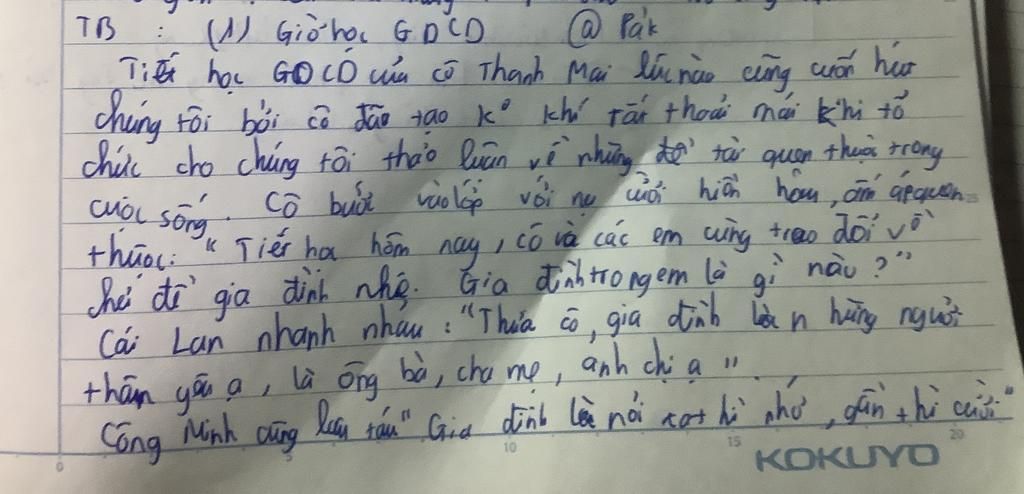 TB : (1) Giờ học GDCD @ Pák
Tiết học GDCD của cô Thanh Mai lúc nào cũng cuốn hút
chúng tôi bởi cô đão tạo k° khí rất thoải mái khi tổ
chức cho chúng tôi thảo luận về những đề tài quen thuộc trong
cuộc sống. Cô bước vào lớp với nụ cười hiền hậu, ấm áp quen
thuộc: "Tiết học hôm nay, cô và các em cùng trao đổi về
chủ đề gia đình nhé. Gia đình trong em là gì nào?"
Cái Lan nhanh nhảu: "Thưa cô, gia đình là những người
thân yêu ạ, là ông bà, cha mẹ, anh chị ạ".
Công Minh cũng láu táu "Gia đình là nơi xa thì nhớ, gần thì cười"
0 5 10 15 20 25
KOKUYO